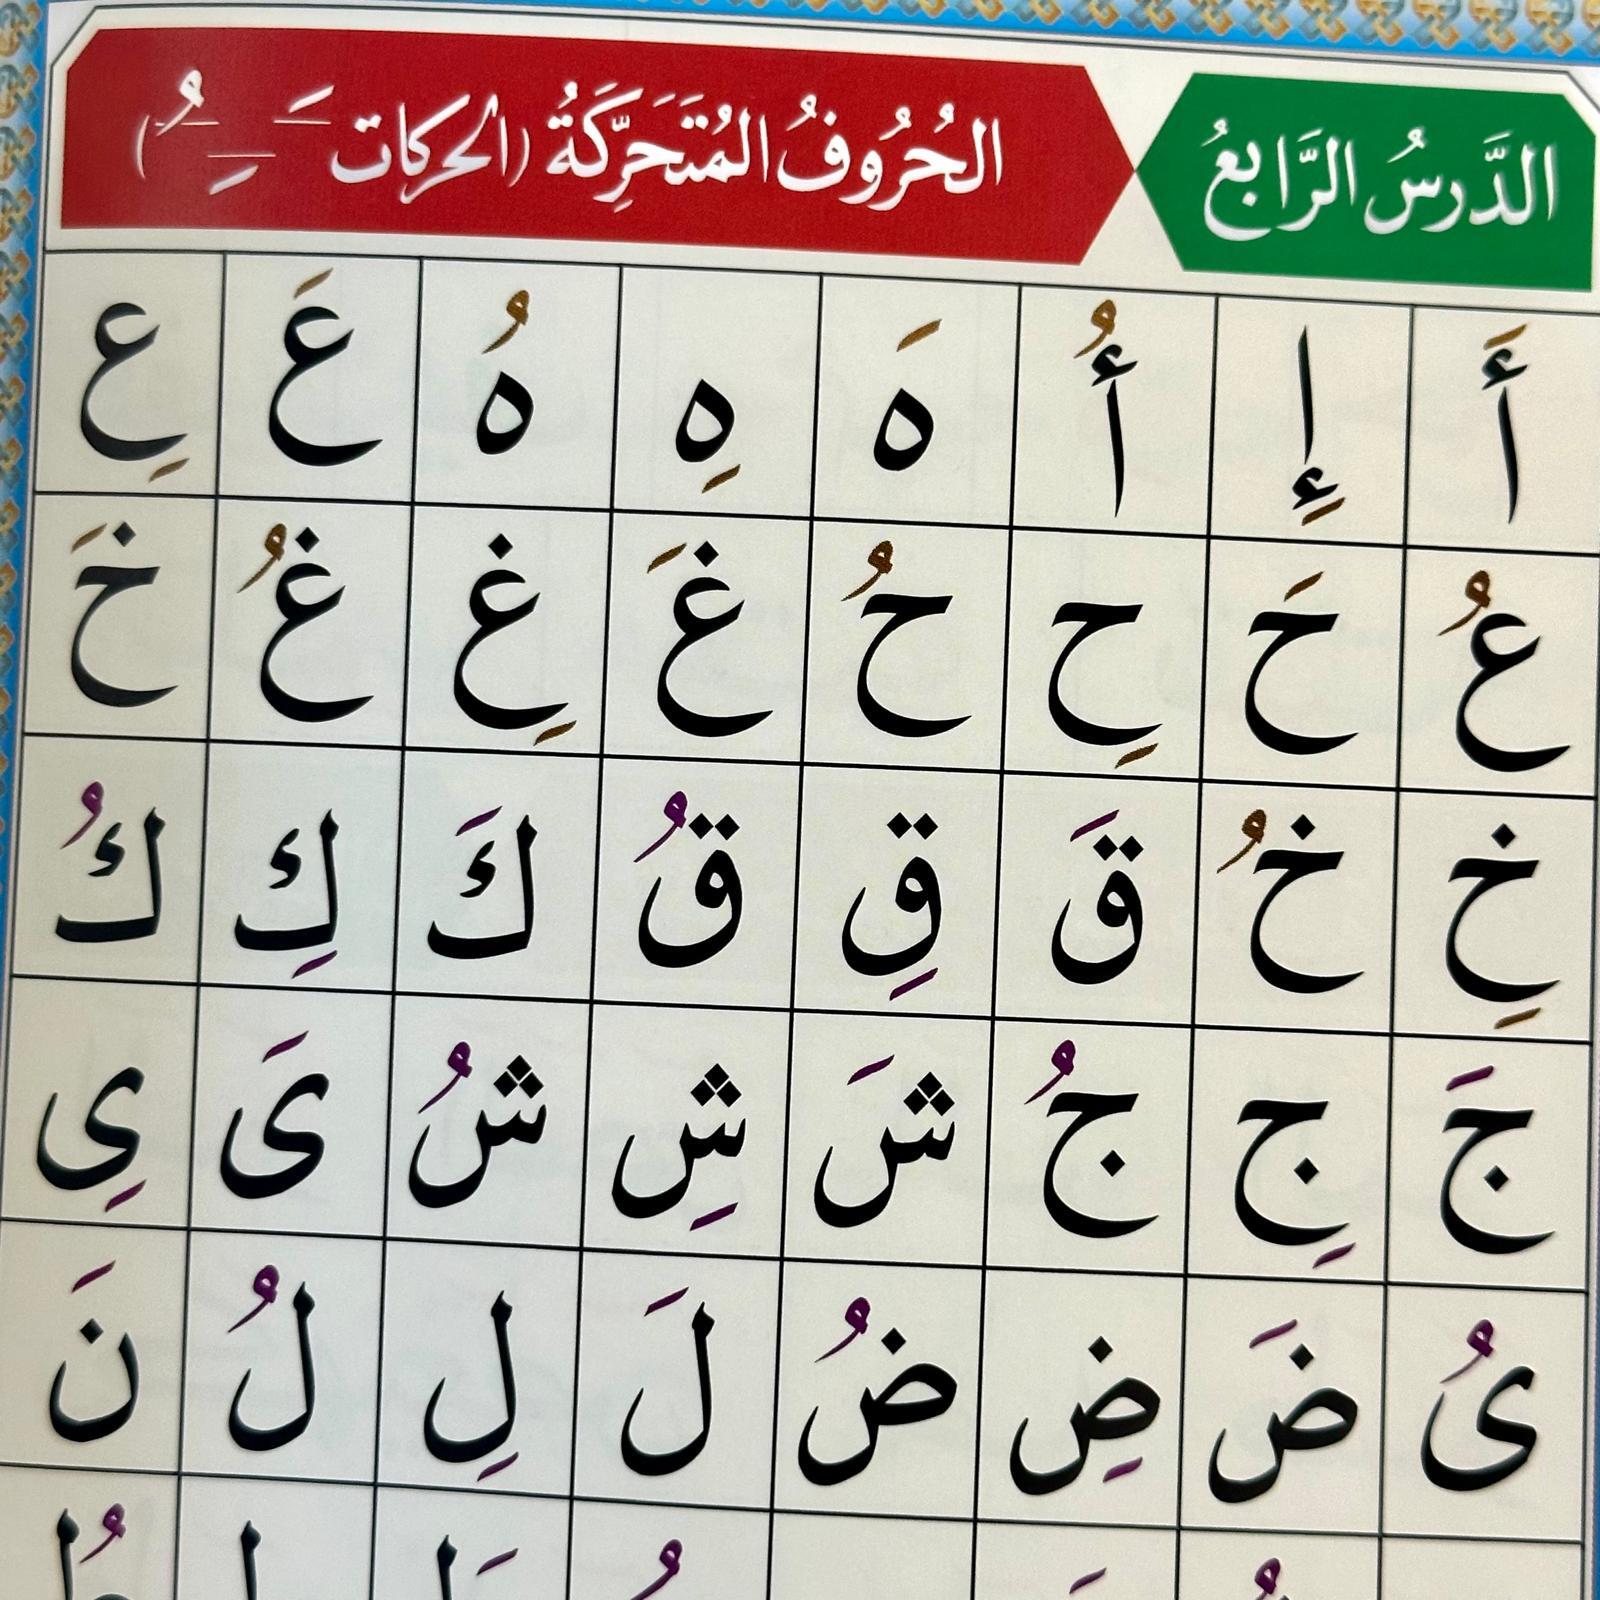 الدَّرسُ الرَّابعُ
الحُرُوفُ المُتَحَرِّكَةُ (الحركات ـَ ـِ ـُ)
أَ إِ أُ هَ هِ هُ عَ عِ
عُ حَ حِ حُ غَ غِ غُ خَ
خِ خُ قَ قِ قُ كَ كِ كُ
جَ جِ جُ شَ شِ شُ ىَ ىِ
ىُ ضَ ضِ ضُ لَ لِ لُ نَ